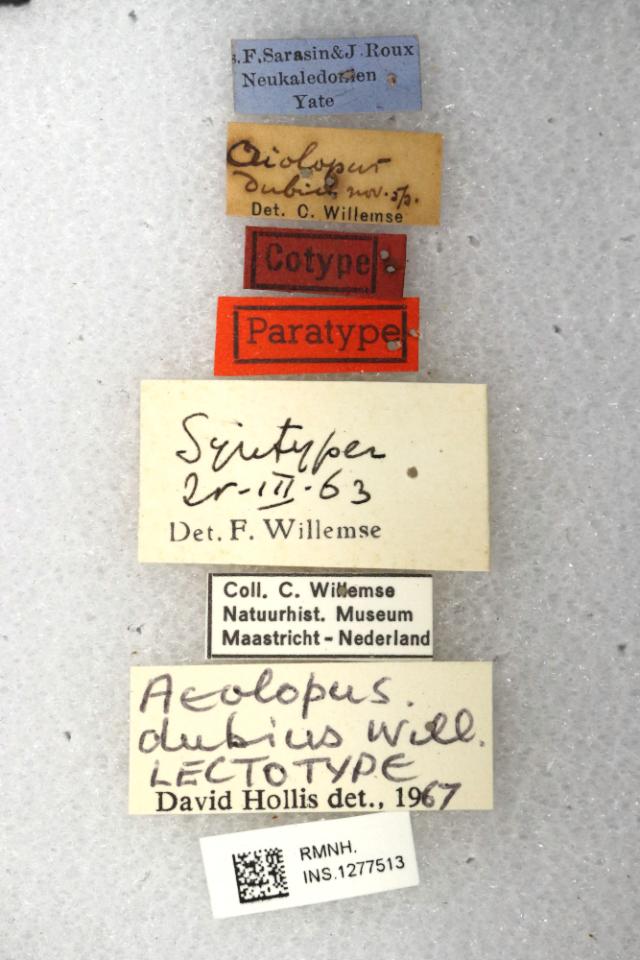 s.F.Sarasin&J.Roux
Neukaledonien
Yate
Aiolopus
dubius nov. sp.
Det. C. Willemse
Cotype
Paratype
Syntypen
25-III-63
Det. F. Willemse
Coll. C. Willemse
Natuurhist. Museum
Maastricht-Nederland
Aeolopus.
dubius Will.
LECTOTYPE
David Hollis det., 1967
RMNH.
INS.1277513